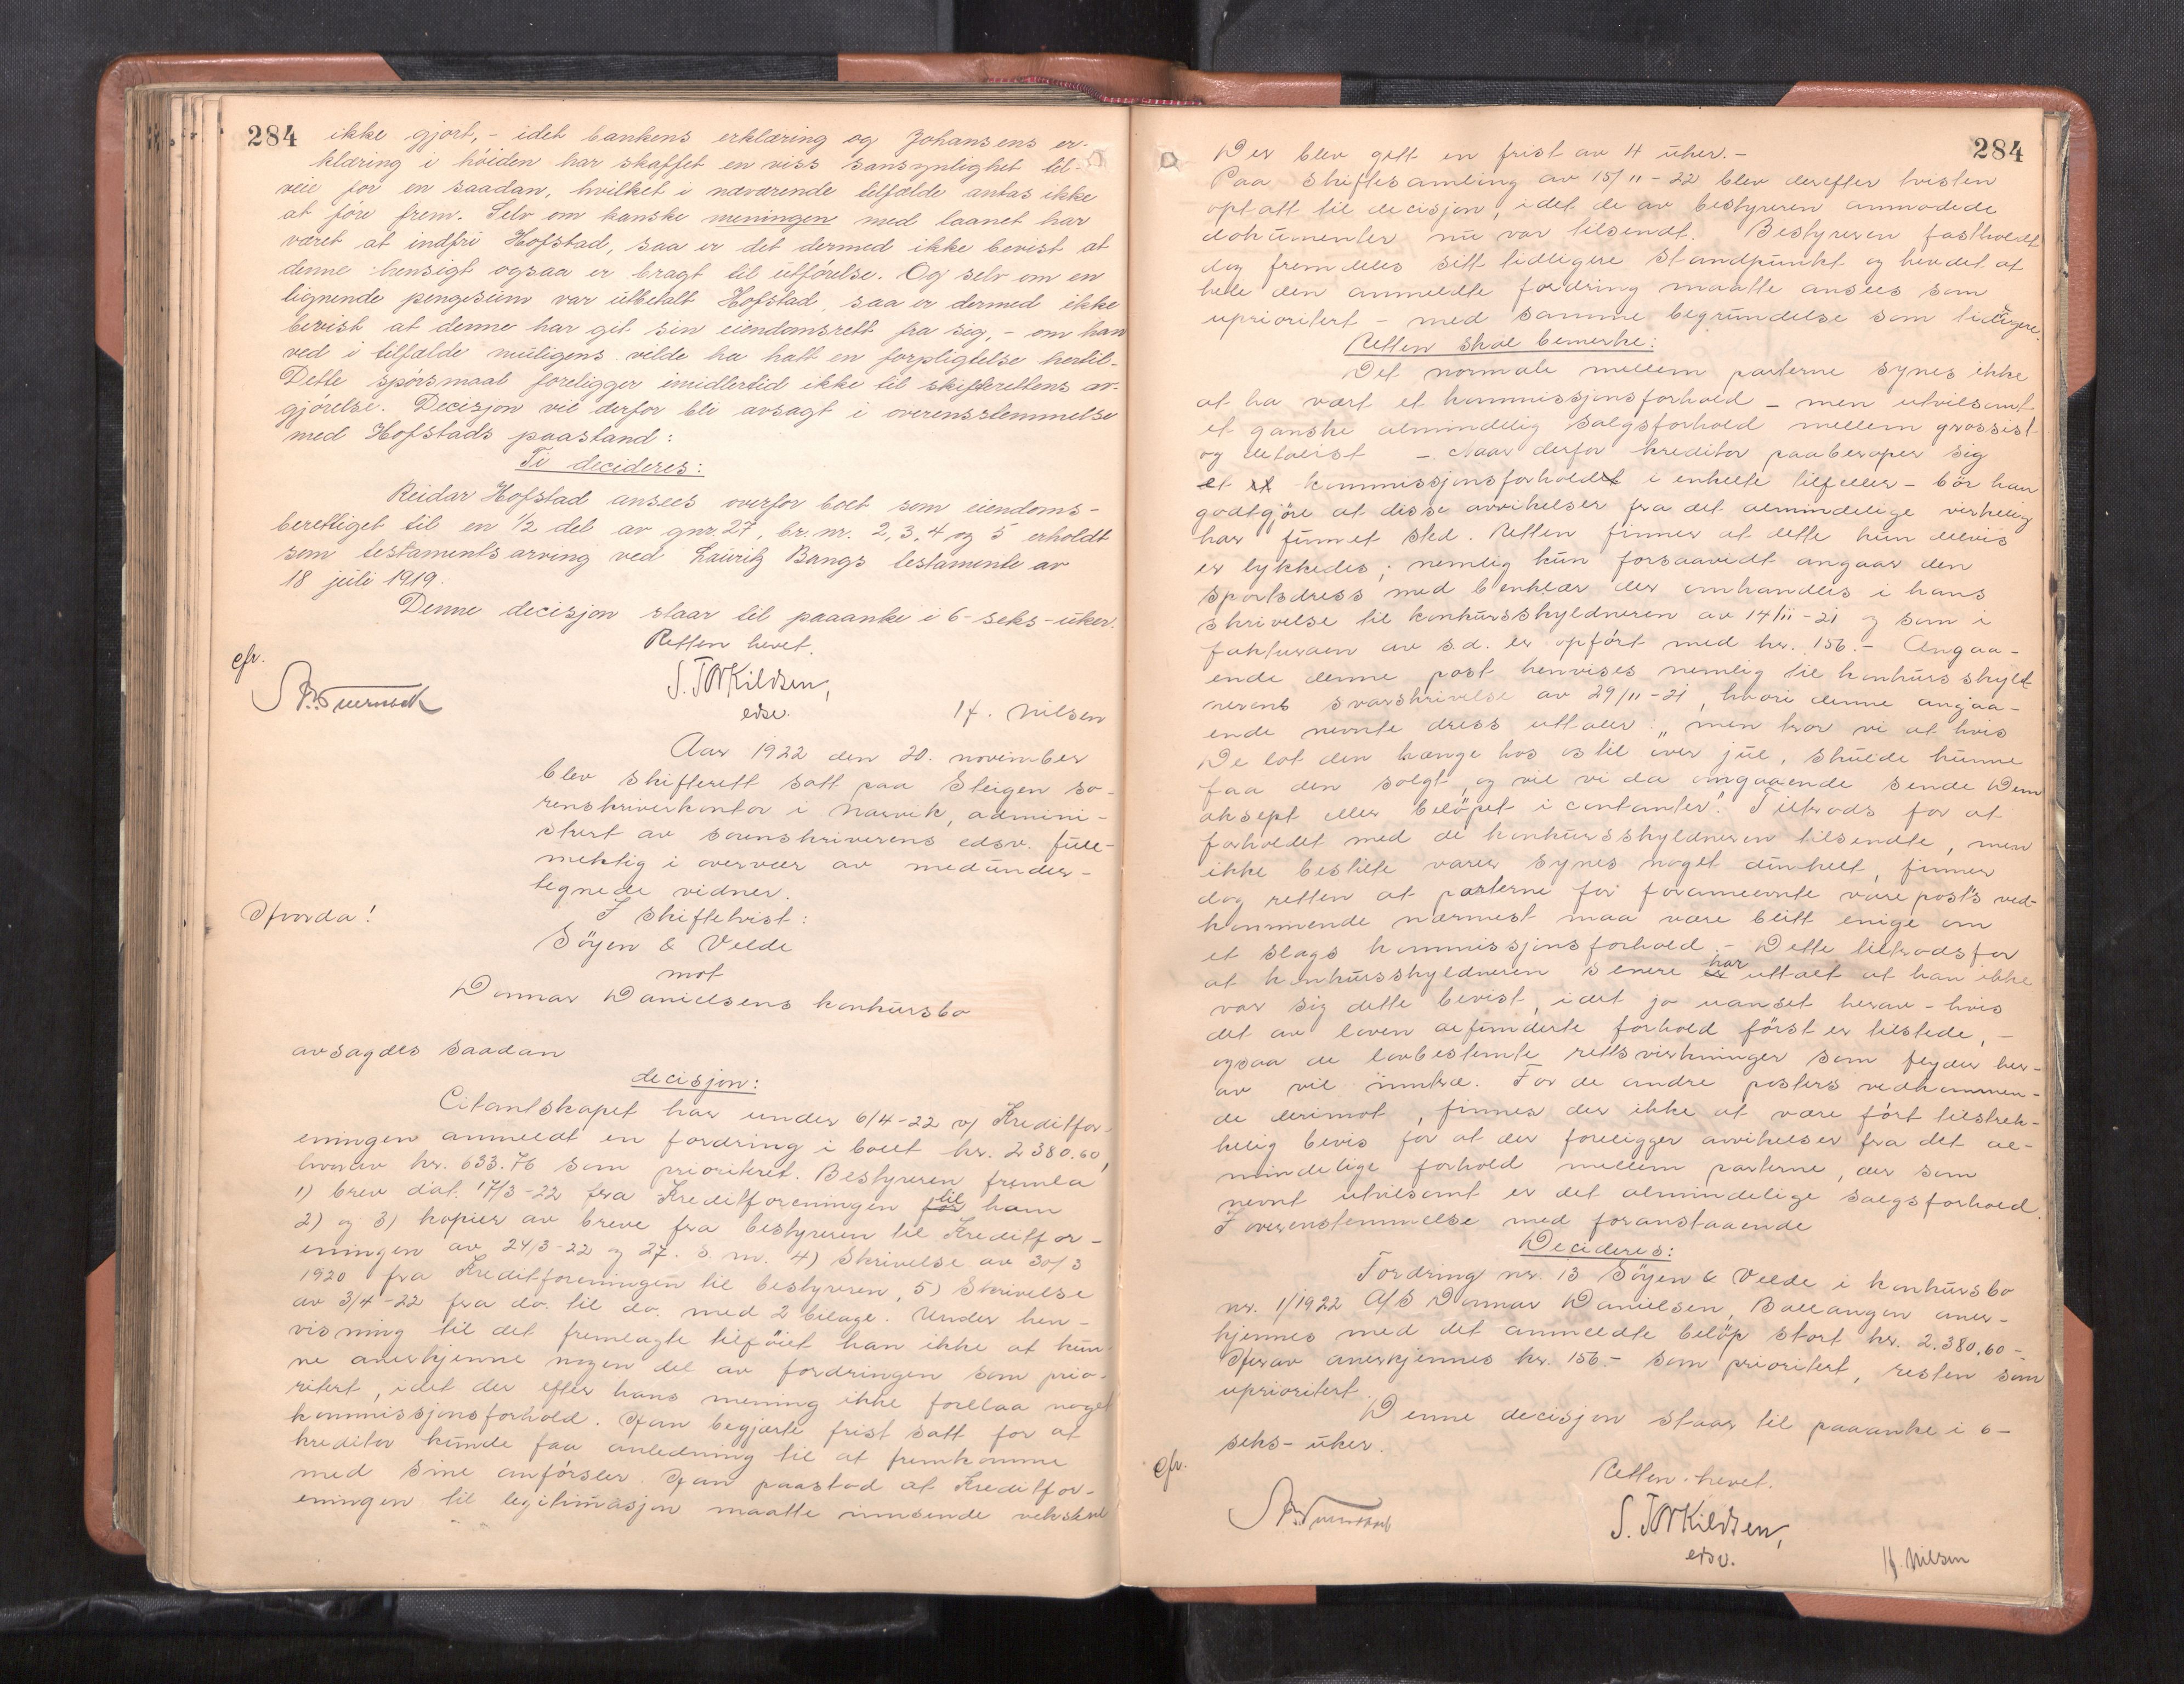 284
ikke gjort, - idet bankens erklæring og Johansens er-
klæring i höiden har skaffet en viss sansynlighet til-
veie for en saadan, hvilket i nærværende tilfælde antas ikke
at före frem. Selv om kanske meningen med laanet har
været at indfri Hofstad, saa er det dermed ikke bevist at
denne hensigt ogsaa er bragt til utförelse. Og selv om en
lignende pengesum var utbetalt Hofstad, saa er dermed ikke
bevist at denne har git sin eiendomsrett fra sig, - om han
ved i tilfælde muligens vilde ha hatt en forpligtelse hertil.
Dette spörsmaal foreligger imidlertid ikke til skifterettens av-
gjörelse. Decisjon vil derfor bli avsagt i overensstemmelse
med Hofstads paastand:
Ti decideres:
Reidar Hofstad ansees overfor boet som eiendoms-
berettiget til en 1/2 del av gnr. 27, br. nr. 2, 3, 4 og 5 erholdt
som testaments arving ved Lauritz Bangs testamente av
18 juli 1919.
Denne decisjon staar til paaanke i 6 - seks - uker.
Retten hevet.
S. Torkildsen,
edsv.
H. Nilsen
Aar 1922 den 20. november
blev skifterett satt paa Steigen so-
renskriverkontor i Narvik, admini-
strert av sorenskriverens edsv. full-
mektig i overvær av medunder-
tegnede vidner.
Hvorda!
I skiftetvist:
Söyen & Velde
mot
Donnar Danielsens konkursbo
avsagdes saadan
decisjon:
Citantskapet har under 6/4-22 v/ Kreditfor-
eningen anmeldt en fordring i boet kr. 2380.60,
hvorav kr. 633.76 som prioritert. Bestyreren fremla
1) brev dat. 17/3-22 fra Kreditforeningen for til ham
2) og 3) kopier av breve fra bestyreren til Kreditfor-
eningen av 24/3-22 og 27. s. m. 4) Skrivelse av 30/3
1920 fra Kreditforeningen til bestyreren, 5) Skrivelse
av 3/4-22 fra do. til do. med 2 bilage. Under hen-
visning til det fremlagte tilföiet han ikke at kun-
ne anerkjenne nogen del av fordringen som prio-
ritert, idet der efter hans mening ikke forelaa noget
kommissjonsforhold. Han begjærte frist satt for at
kreditor kunde faa anledning til at fremkomme
med sine anförsler. Han paastod at Kreditfor-
eningen til legitimasjon maatte innsende vekslene
284
Der blev gitt en frist av 4 uker.-
Paa skiftesamling av 15/11-22 blev derefter tvisten
optatt til decisjon, idet de av bestyreren anmodede
dokumenter nu var tilsendt. Bestyreren fastholdt
dog fremdeles sitt tidligere standpunkt og hevdet at
hele den anmeldte fordring maatte ansees som
uprioritert - med samme begrundelse som tidligere.
Retten skal bemerke:
Det normale mellem parterne synes ikke
at ha vært et kommissjonsforhold - men utvilsomt
et ganske almindelig salgsforhold mellem grossist
og detalist -. Naar derfor kreditor paaberoper sig
et kommissjonsforholdet i enkelte tilfeller - bör han
godtgjöre at disse avvikelser fra det almindelige virkelig
har funnet sted. Retten finner at dette kun delvis
er lykkedes; nemlig kun forsaavidt angaar den
sportsdress med benklær der omhandles i hans
skrivelse til konkursskyldneren av 14/11-21 og som i
fakturaen av s.d. er opfört med kr. 156.- Angaa-
ende denne post henvises nemlig til konkursskyld-
nerens svarskrivelse av 29/11-21, hvori denne angaa-
ende nevnte dress uttaler: „men tror vi at hvis
De lot den hænge hos os til over jul, skulde kunne
faa den solgt, og vil vi da omgaaende sende Dem
aksept eller belöpet i contanter". Tiltrods for at
forholdet med de konkursskyldneren tilsendte, men
ikke bestilte varer synes noget dunkelt, finner
dog retten at parterne for foranevnte vareposts ved-
kommende nærmest maa være blitt enige om
et slags kommissjonsforhold. - Dette tiltrods for
at konkursskyldneren senere er har uttalt at han ikke
var sig dette bevist, idet jo uanset herav - hvis
det av loven definderte forhold först er tilstede, -
ogsaa de lovbestemte rettsvirkninger som flyder her-
av vil inntræ. For de andre posters vedkommen-
de derimot, finnes der ikke at være fört tilstrek-
kelig bevis for at der foreligger avvikelser fra det al-
mindelige forhold mellem parterne, der som
nevnt utvilsomt er det almindelige salgsforhold.
I overenstemmelse med foranstaaende
Decideres:
Fordring nr. 13 Söyen & Velde i konkursbo
nr. 1/1922 A/S Donnar Danielsen, Ballangen aner-
kjennes med det anmeldte belöp stort kr. 2.380.60-.
Herav anerkjennes kr. 156.- som prioritert, resten som
uprioritert.
Denne decisjon staar til paaanke i 6 -
seks - uker.
Retten hevet.
S. Torkildsen,
edsv.
H. Nilsen